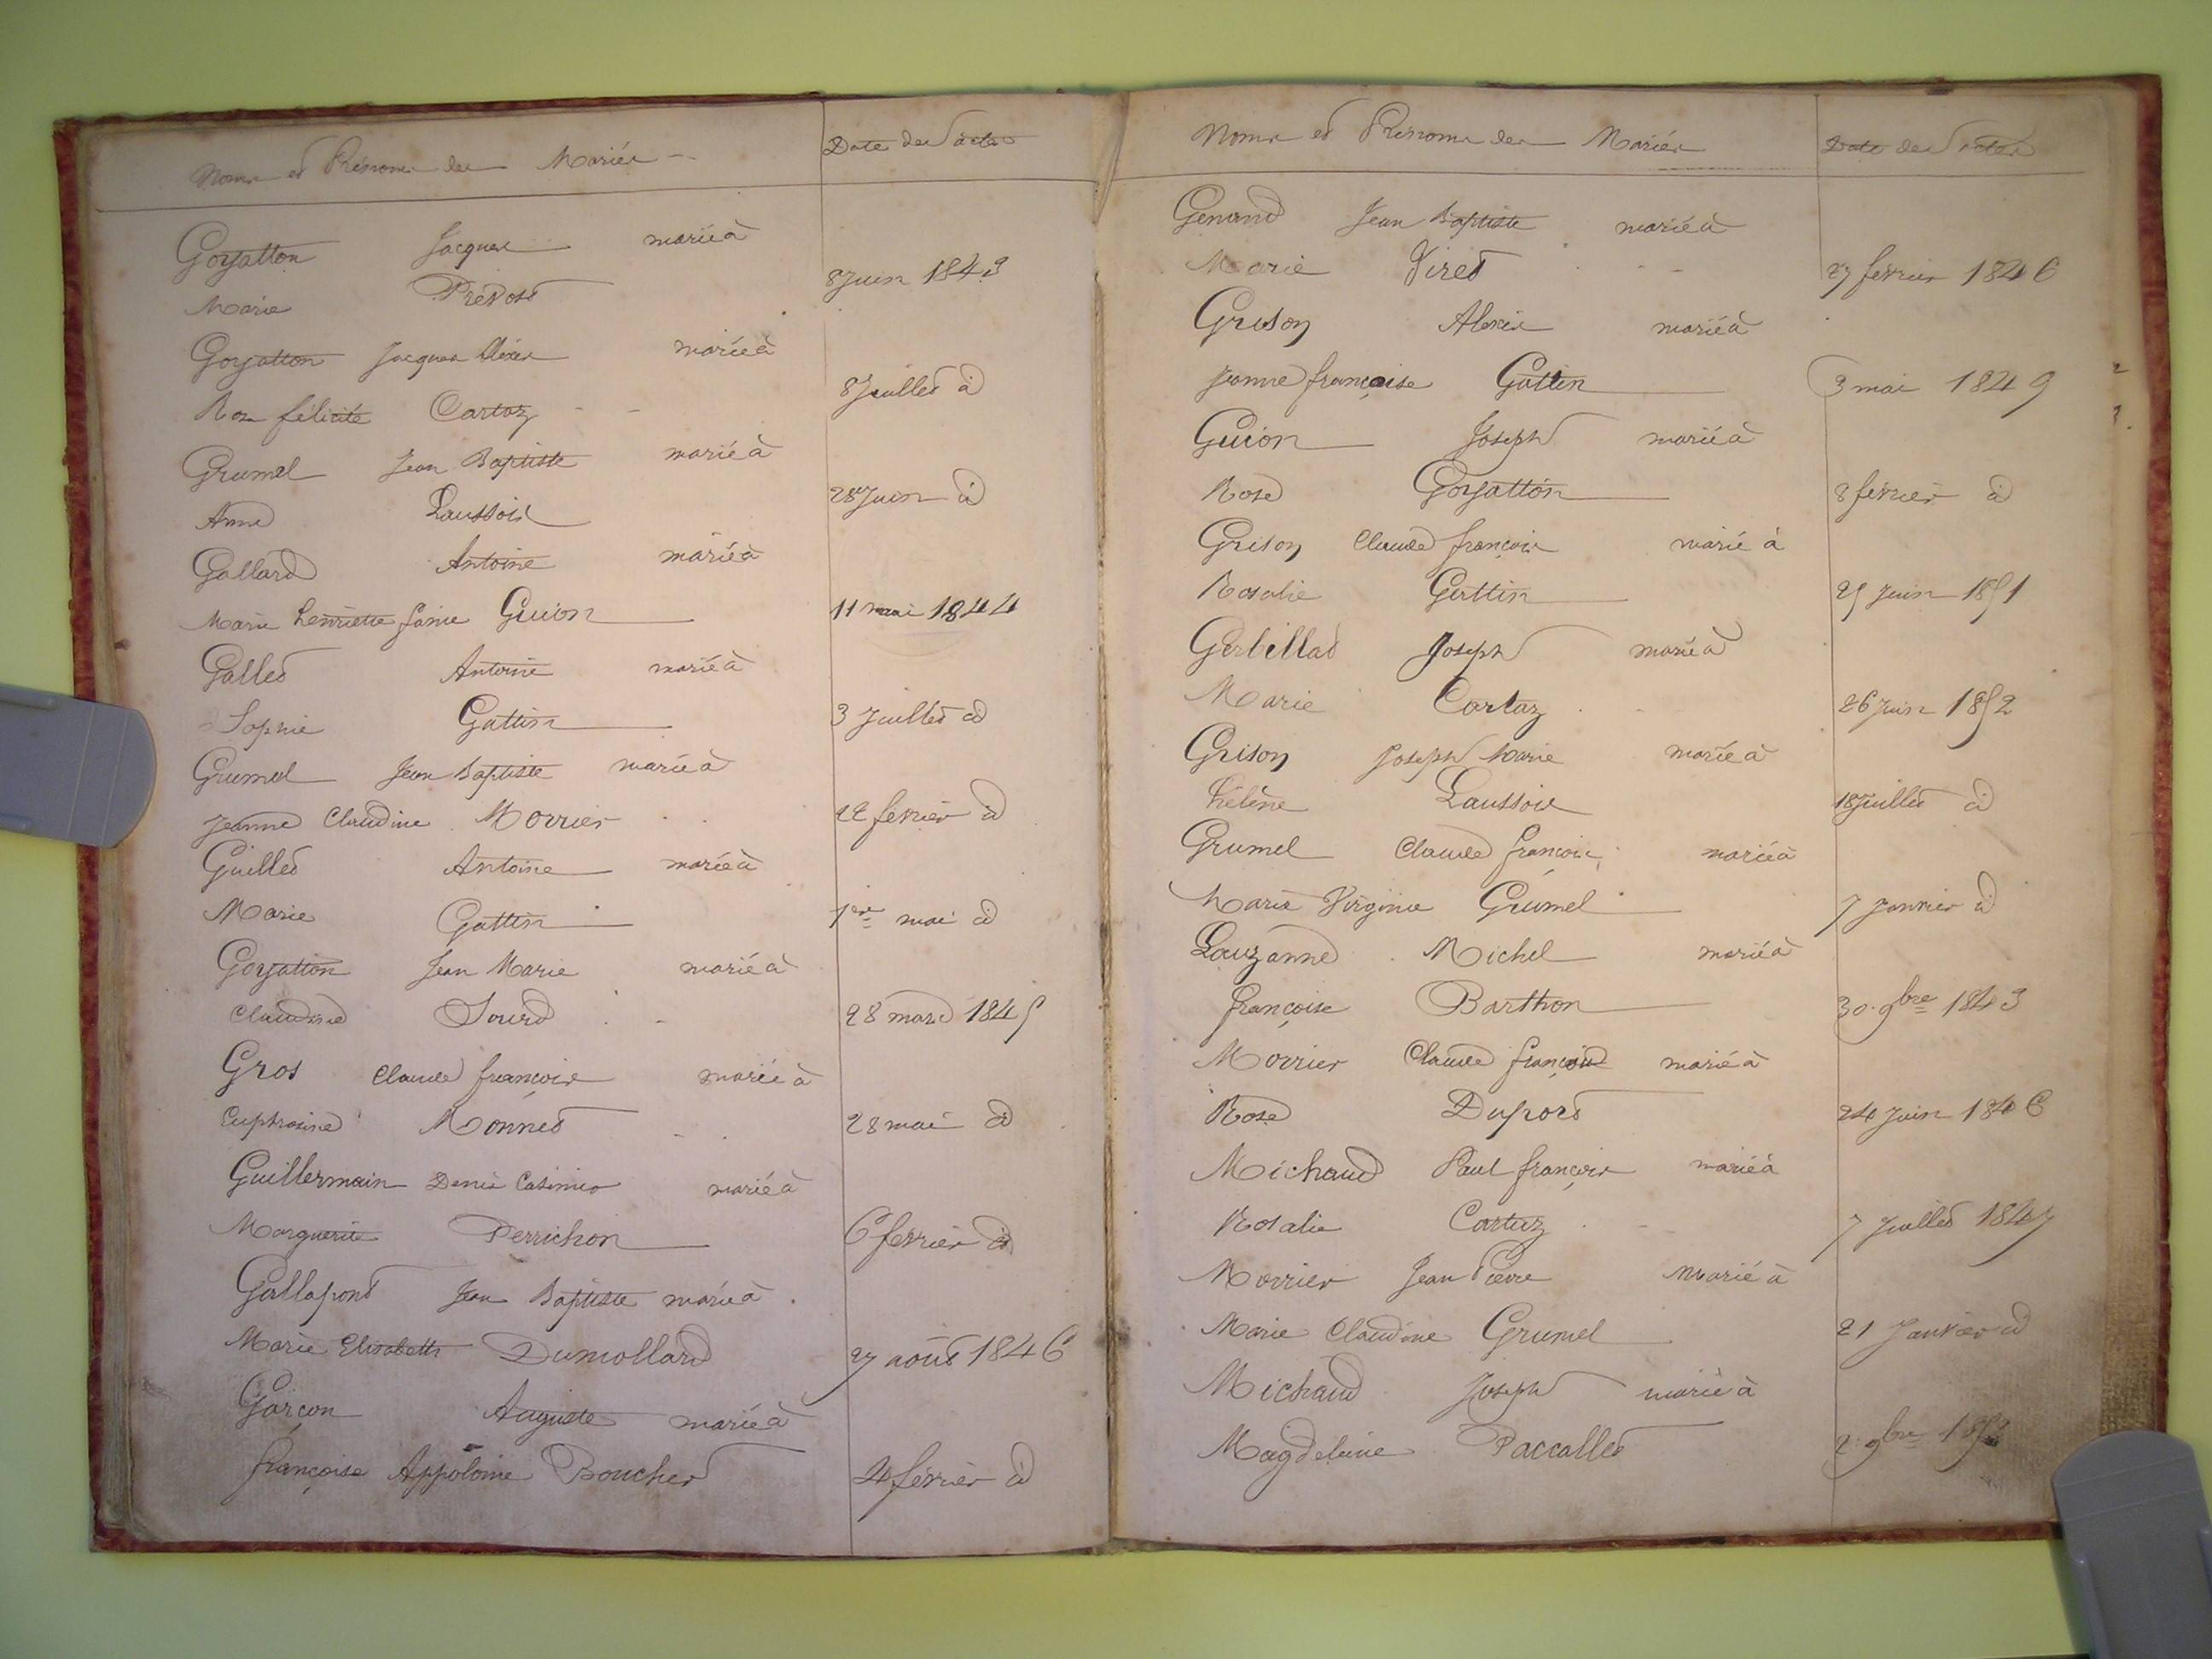 Noms et Prénoms des Mariés
Date des actes
Goyatton Jacques marié à
Marie Prévost 8 Juin 1843
Goyatton Jacques Aléxis marié à
Rose félicité Cartaz 8 Juillet id
Grumel Jean Baptiste marié à
Anne Laussois 28 Juin id
Gallard Antoine marié à
Marie henriette fanie Guion 11 mai 1844
Gallet Antoine marié à
Sophie Gattin 3 Juillet id
Grumel Jean Baptiste marié à
Jeanne Claudine Morrier 22 février id
Guillet Antoine marié à
Marie Gattin 1er mai id
Goyatton Jean Marie marié à
Claudine Sourd 28 mars 1845
Gros Claude françois marié à
Euphrosine Monnet 28 mai id
Guillermain Denis Casimir marié à
Marguerite Perrichon 6 février id
Gallapont Jean Baptiste marié à
Marie Elisabeth Dumollard 27 août 1846
Garçon Auguste marié à
françoise Appoloine Boucher 4 février id
Noms et Prénoms des Mariés
Date des actes
Genand Jean Baptiste marié à
Marie Viret 27 février 1846
Grison Alexis marié à
Jeanne françoise Gattin 3 mai 1849
Guion Joseph marié à
Rose Goyatton 8 février id
Grison Claude françois marié à
Rosalie Gattin 25 Juin 1851
Gerbillat Joseph marié à
Marie Cartaz 26 Juin 1852
Grison Joseph Marie marié à
hélène Laussois 18 Juillet id
Grumel Claude françois marié à
Marie Virginie Grumel 7 Janvier id
Lauzanne Michel marié à
françoise Barthon 30 9bre 1843
Morrier Claude françois marié à
Rose Duport 24 Juin 1846
Michaud Paul françois marié à
Rosalie Cartaz 7 Juillet 1847
Morrier Jean Pierre marié à
Marie Claudine Grumel 21 Janvier id
Michaud Joseph marié à
Magdeleine Paccallet 2 9bre